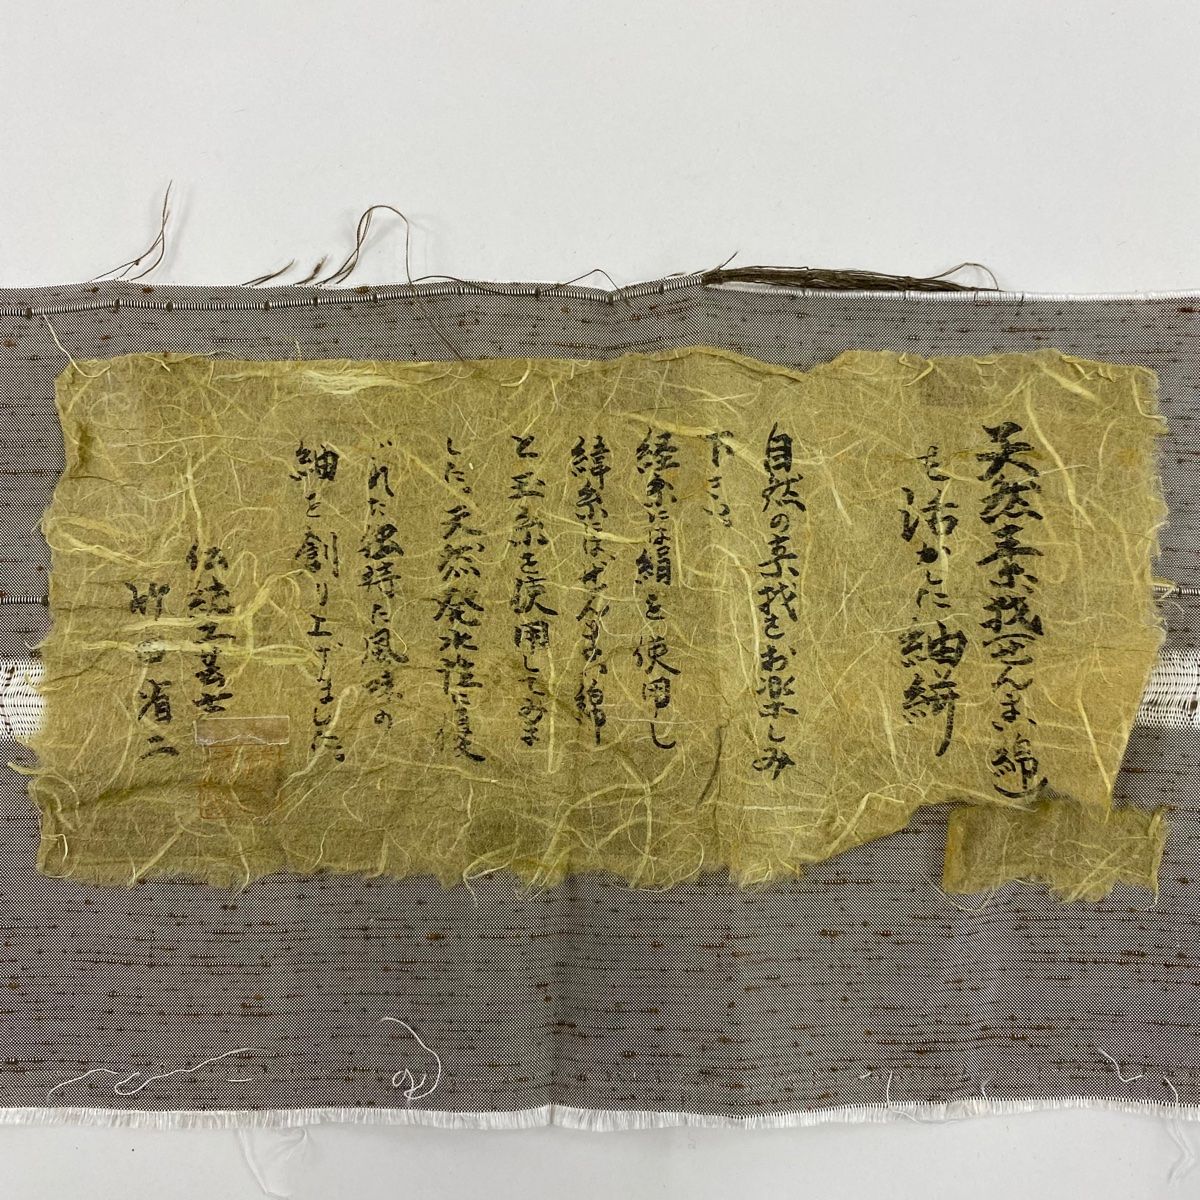 天然素材(ぜんまい綿)
を活かした紬絣
自然の素材をお楽しみ
下さい。
経糸には絹を使用し
緯糸にはぜんまい綿
と玉糸を使用してみま
した。天然発水性に優
れた独特な風味の
紬を創り上げました
伝統工芸士
省二